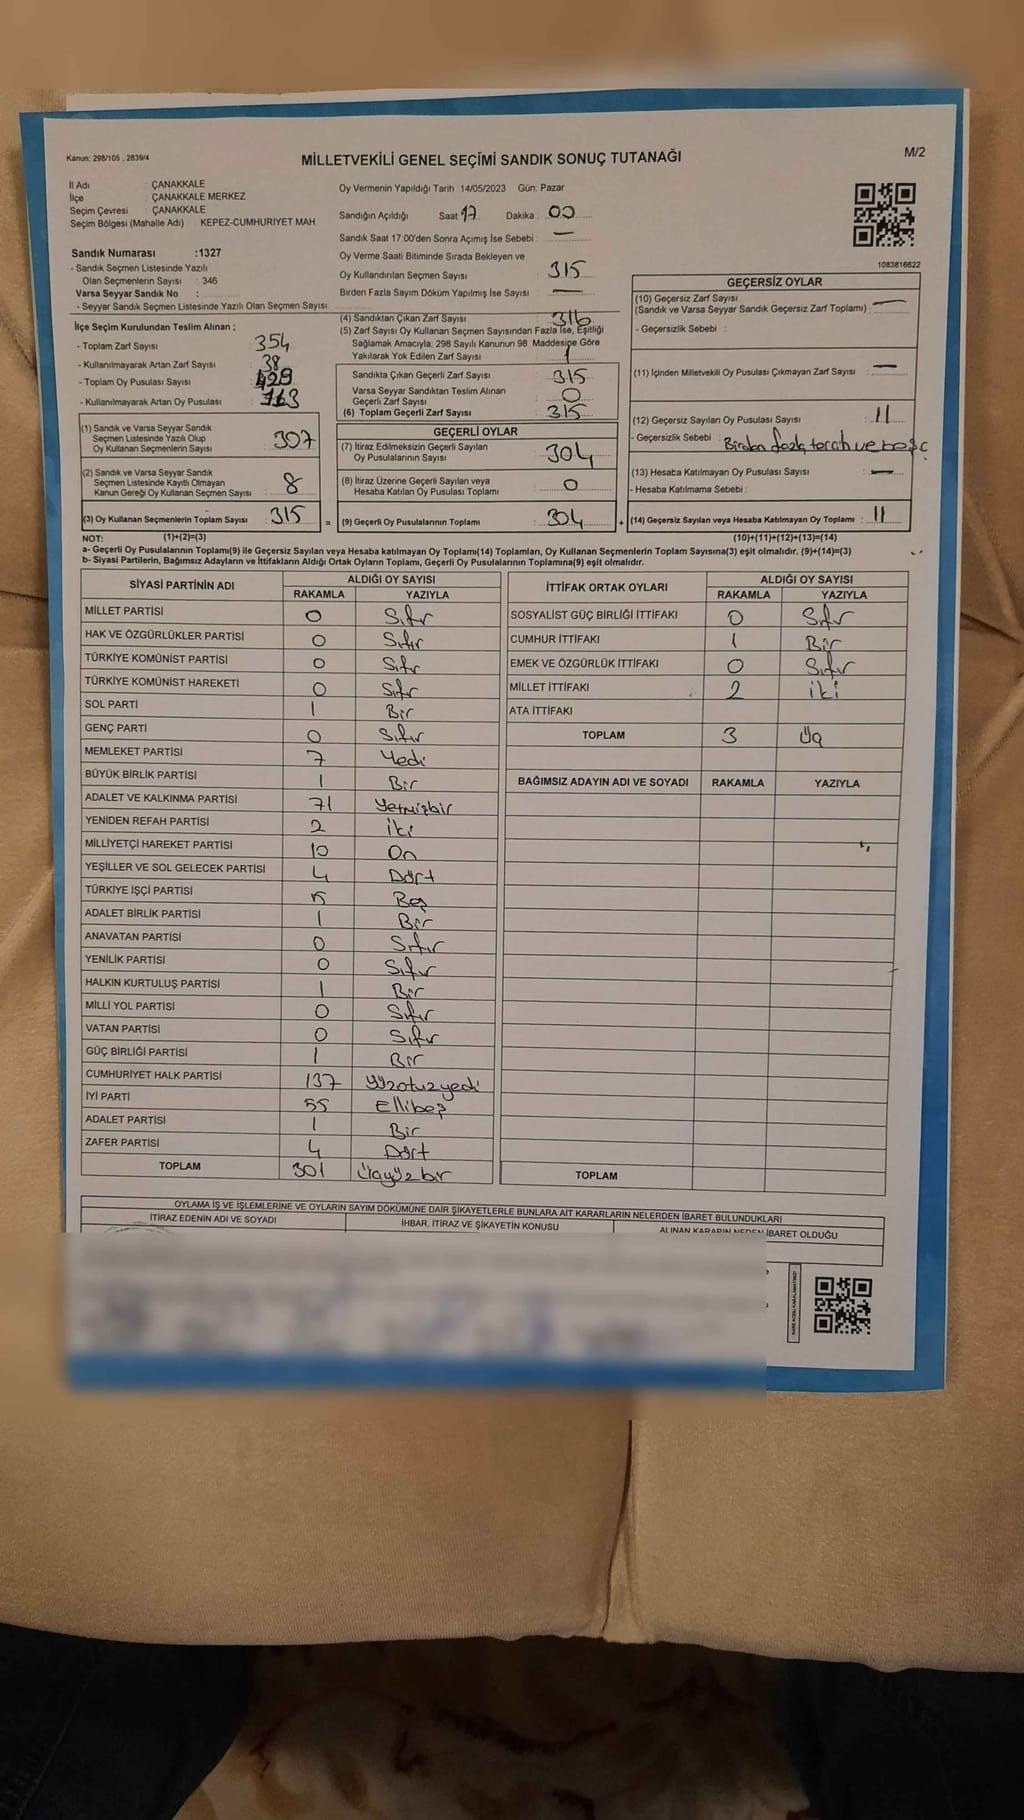 Kanun; 298/105 , 2839/4
MİLLETVEKİLİ GENEL SEÇİMİ SANDIK SONUÇ TUTANAĞI
M/2
İl Adı : ÇANAKKALE
İlçe : ÇANAKKALE MERKEZ
Seçim Çevresi : ÇANAKKALE
Seçim Bölgesi (Mahalle Adı) KEPEZ-CUMHURİYET MAH
Sandık Numarası :1327
- Sandık Seçmen Listesinde Yazılı
Olan Seçmenlerin Sayısı : 346
Varsa Seyyar Sandık No :
- Seyyar Sandık Seçmen Listesinde Yazılı Olan Seçmen Sayısı
İlçe Seçim Kurulundan Teslim Alınan ;
- Toplam Zarf Sayısı 354
- Kullanılmayarak Artan Zarf Sayısı 38
- Toplam Oy Pusulası Sayısı
- Kullanılmayarak Artan Oy Pusulası
(1) Sandık ve Varsa Seyyar Sandık
Seçmen Listesinde Yazılı Olup
Oy Kullanan Seçmenlerin Sayısı : 307
(2) Sandık ve Varsa Seyyar Sandık
Seçmen Listesinde Kayıtlı Olmayan
Kanun Gereği Oy Kullanan Seçmen Sayısı : 8
(3) Oy Kullanan Seçmenlerin Toplam Sayısı : 315
Oy Vermenin Yapıldığı Tarih :14/05/2023 Gün: Pazar
Sandığın Açıldığı Saat: 17 Dakika : 00
Sandık Saat 17:00'den Sonra Açımış İse Sebebi : —
Oy Verme Saati Bitiminde Sırada Bekleyen ve
Oy Kullandırılan Seçmen Sayısı : 315
Birden Fazla Sayım Döküm Yapılmış İse Sayısı : —
(4) Sandıktan Çıkan Zarf Sayısı : 316
(5) Zarf Sayısı Oy Kullanan Seçmen Sayısından Fazla İse, Eşitliği
Sağlamak Amacıyla; 298 Sayılı Kanunun 98. Maddesine Göre
Yakılarak Yok Edilen Zarf Sayısı : 1
Sandıkta Çıkan Geçerli Zarf Sayısı : 315
Varsa Seyyar Sandıktan Teslim Alınan
Geçerli Zarf Sayısı : 0
(6) Toplam Geçerli Zarf Sayısı : 315
GEÇERLİ OYLAR
(7) İtiraz Edilmeksizin Geçerli Sayılan
Oy Pusulalarının Sayısı : 304
(8) İtiraz Üzerine Geçerli Sayılan veya
Hesaba Katılan Oy Pusulası Toplamı : 0
= (9) Geçerli Oy Pusulalarının Toplamı : 304
1083816622
GEÇERSİZ OYLAR
(10) Geçersiz Zarf Sayısı
(Sandık ve Varsa Seyyar Sandık Geçersiz Zarf Toplamı) : —
- Geçersizlik Sebebi :
(11) İçinden Milletvekili Oy Pusulası Çıkmayan Zarf Sayısı : —
(12) Geçersiz Sayılan Oy Pusulası Sayısı : 11
- Geçersizlik Sebebi : Birden fazla tercih ve boş
(13) Hesaba Katılmayan Oy Pusulası Sayısı : —
- Hesaba Katılmama Sebebi :
+ (14) Geçersiz Sayılan veya Hesaba Katılmayan Oy Toplamı : 11
NOT: (1)+(2)=(3) (10)+(11)+(12)+(13)=(14)
a- Geçerli Oy Pusulalarının Toplamı(9) ile Geçersiz Sayılan veya Hesaba katılmayan Oy Toplamı(14) Toplamları, Oy Kullanan Seçmenlerin Toplam Sayısına(3) eşit olmalıdır. (9)+(14)=(3)
b- Siyasi Partilerin, Bağımsız Adayların ve İttifakların Aldığı Ortak Oyların Toplamı, Geçerli Oy Pusulalarının Toplamına(9) eşit olmalıdır.
SİYASİ PARTİNİN ADI ALDIĞI OY SAYISI
RAKAMLA YAZIYLA
MİLLET PARTİSİ 0 Sıfır
HAK VE ÖZGÜRLÜKLER PARTİSİ 0 Sıfır
TÜRKİYE KOMÜNİST PARTİSİ 0 Sıfır
TÜRKİYE KOMÜNİST HAREKETİ 0 Sıfır
SOL PARTİ 1 Bir
GENÇ PARTİ 0 Sıfır
MEMLEKET PARTİSİ 7 Yedi
BÜYÜK BİRLİK PARTİSİ 1 Bir
ADALET VE KALKINMA PARTİSİ 71 Yetmişbir
YENİDEN REFAH PARTİSİ 2 İki
MİLLİYETÇİ HAREKET PARTİSİ 10 On
YEŞİLLER VE SOL GELECEK PARTİSİ 4 Dört
TÜRKİYE İŞÇİ PARTİSİ 5 Beş
ADALET BİRLİK PARTİSİ 1 Bir
ANAVATAN PARTİSİ 0 Sıfır
YENİLİK PARTİSİ 0 Sıfır
HALKIN KURTULUŞ PARTİSİ 1 Bir
MİLLİ YOL PARTİSİ 0 Sıfır
VATAN PARTİSİ 0 Sıfır
GÜÇ BİRLİĞİ PARTİSİ 1 Bir
CUMHURİYET HALK PARTİSİ 137 Yüzotuzyedi
İYİ PARTİ 55 Ellibeş
ADALET PARTİSİ 1 Bir
ZAFER PARTİSİ 4 Dört
TOPLAM 301 Üçyüzbir
İTTİFAK ORTAK OYLARI ALDIĞI OY SAYISI
RAKAMLA YAZIYLA
SOSYALİST GÜÇ BİRLİĞİ İTTİFAKI 0 Sıfır
CUMHUR İTTİFAKI 1 Bir
EMEK VE ÖZGÜRLÜK İTTİFAKI 0 Sıfır
MİLLET İTTİFAKI 2 İki
ATA İTTİFAKI
TOPLAM 3 Üç
BAĞIMSIZ ADAYIN ADI VE SOYADI RAKAMLA YAZIYLA
TOPLAM
OYLAMA İŞ VE İŞLEMLERİNE VE OYLARIN SAYIM DÖKÜMÜNE DAİR ŞİKAYETLERLE BUNLARA AİT KARARLARIN NELERDEN İBARET BULUNDUKLARI
İTİRAZ EDENİN ADI VE SOYADI İHBAR, İTİRAZ VE ŞİKAYETİN KONUSU ALINAN KARARIN NEDEN İBARET OLDUĞU